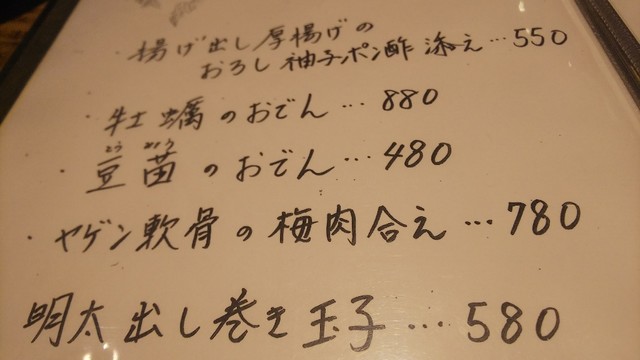 ・揚げ出し厚揚げの
おろし柚子ポン酢添え…550
・牡蠣のおでん…880
とう みょう
・豆苗のおでん…480
・ヤゲン軟骨の梅肉合え…780
明太出し巻き玉子…580